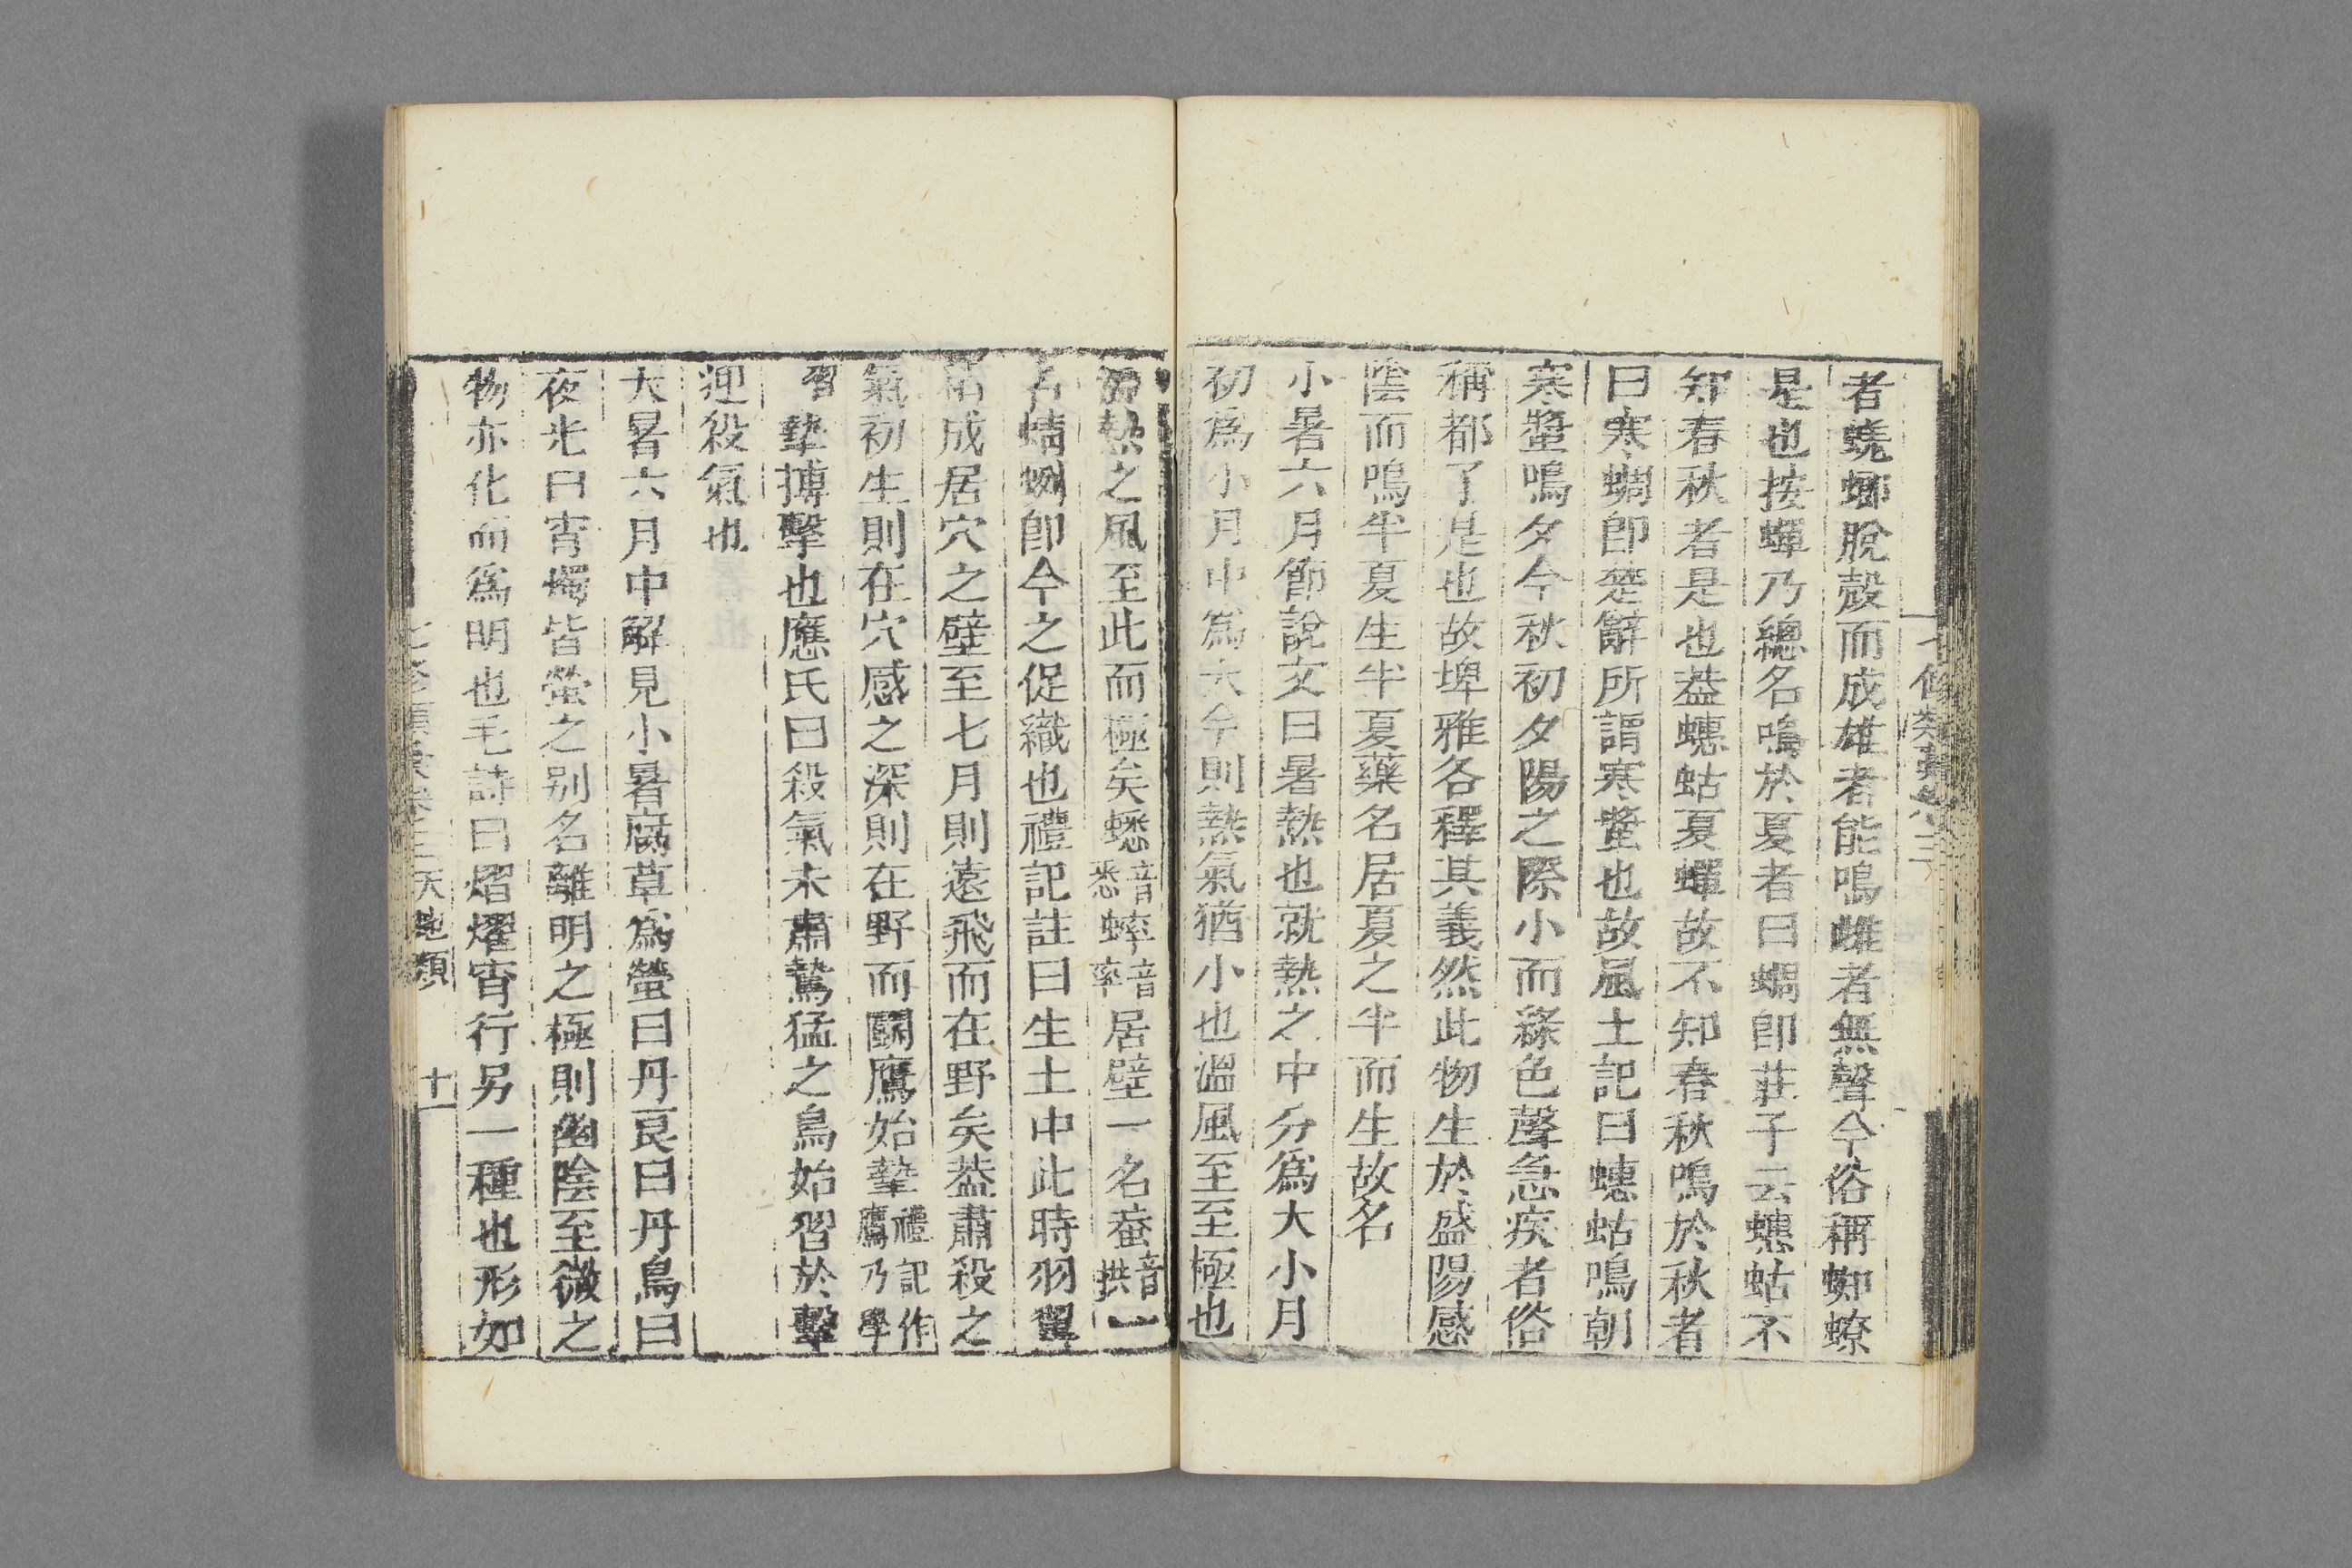 者蜣螂脫殼而成雄者能鳴雌者無聲今俗稱蜘蟟
是也按蟬乃總名鳴於夏者曰蜩卽莊子云蟪蛄不
知春秋者是也葢蟪蛄夏蟬故不知春秋鳴於秋者
曰寒蜩卽楚辭所謂寒螿也故風土記曰蟪蛄鳴朝
寒螿鳴夕今秋初夕陽之際小而綠色聲急疾者俗
稱都了是也故埤雅各釋其義然此物生於盛陽感
陰而鳴半夏生半夏藥名居夏之半而生故名
小暑六月節說文曰暑熱也就熱之中分為大小月
初為小月中為大今則熱氣猶小也溫風至至極也
熱之風至此而極矣蟋音悉蟀音率居壁一名蛬音拱一
名蜻蛚卽今之促織也禮記註曰生土中此時羽翼
成居穴之壁至七月則遠飛而在野矣葢肅殺之
氣初生則在穴感之深則在野而鬬鷹始摯禮記作鷹乃學
習摯搏擊也應氏曰殺氣未肅鷙猛之鳥始習於擊
迎殺氣也
大暑六月中解見小暑腐草為螢曰丹良曰丹鳥曰
夜光曰宵燭皆螢之别名離明之極則幽陰至微之
物亦化而為明也毛詩曰熠燿宵行另一種也形如
天地類
十